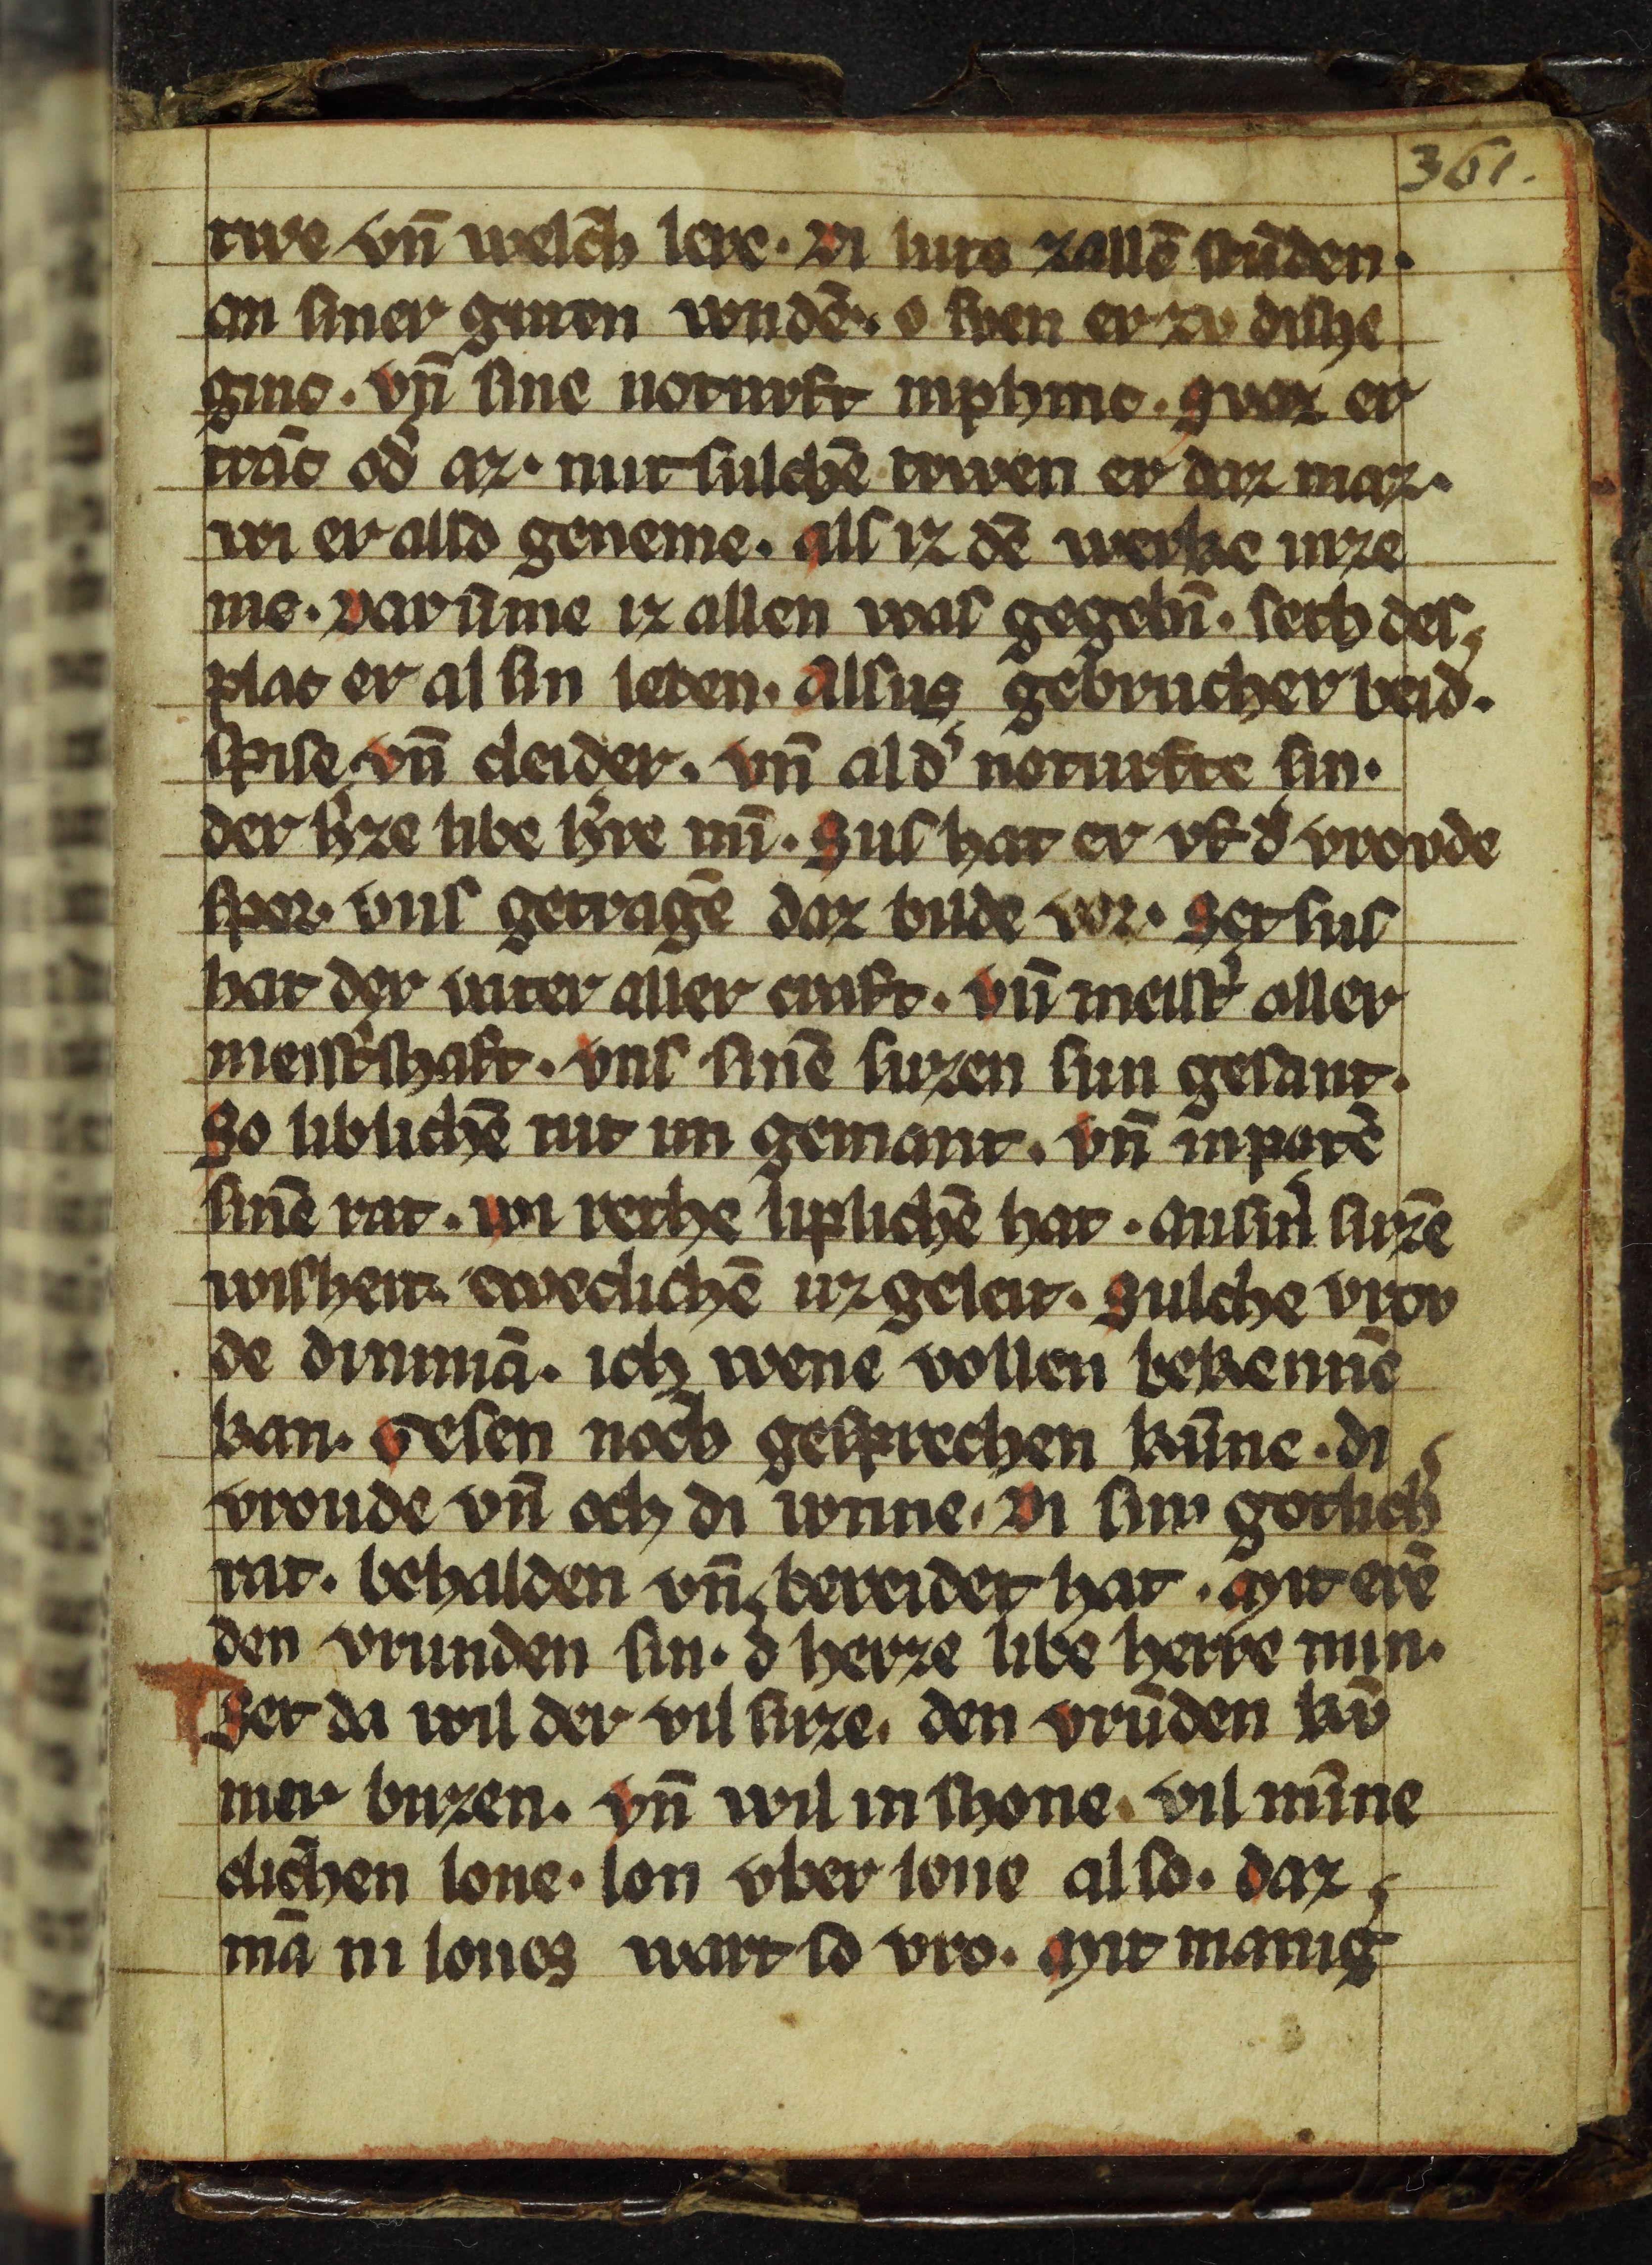 361.
twe vn̄ welch̄ lere. Di lute zallē stūden.
an siner guten wndē. S swen er zv dische
ginc. vn̄ sine noturft inphinc. Swaz er
trāc od̓ az. mit sulchē trwen er daz maz.
wi er also geneme. als iz dē werke inze
me. Dar ūme iz allen was gegebn̄. seth des
plac er al sin leben. Alsus gebrucher beid̓.
spise vn̄ cleider. vn̄ al d̓ noturfte sin.
der h̓ze libe h̓re mī. Sus hat er vf d̓ vrovde
spor. vns getragē daz bilde vor. Set sus
hat der vater aller craft. vn̄ meist̓ aller
meist̓shaft. vns sinē suzen sun gesant.
So liblichē mit im gemant. vn̄ inpotē
sinē rat. wi rethe liplichē hat. an sin̓ suzē
wisheit. eweclichē uz geleit. Sulche vrov
de di nimā. ich wene vollen bekennē
kan. Gesen noch gesprechen kūne. di
vroude vn̄ och di wnne. Di sin gotlich̓
rat. behalden vn̄ bereidet hat. Mit erē
den vrunden sin. d̓ herze libe herre min.
Set da wil der vil suze. den vrūden kv̄
mer buzen. vn̄ wil in shone. vil mīne
clichen lone. lon vber lone also. daz
mā ni lones wart so vro. Mit manig̓